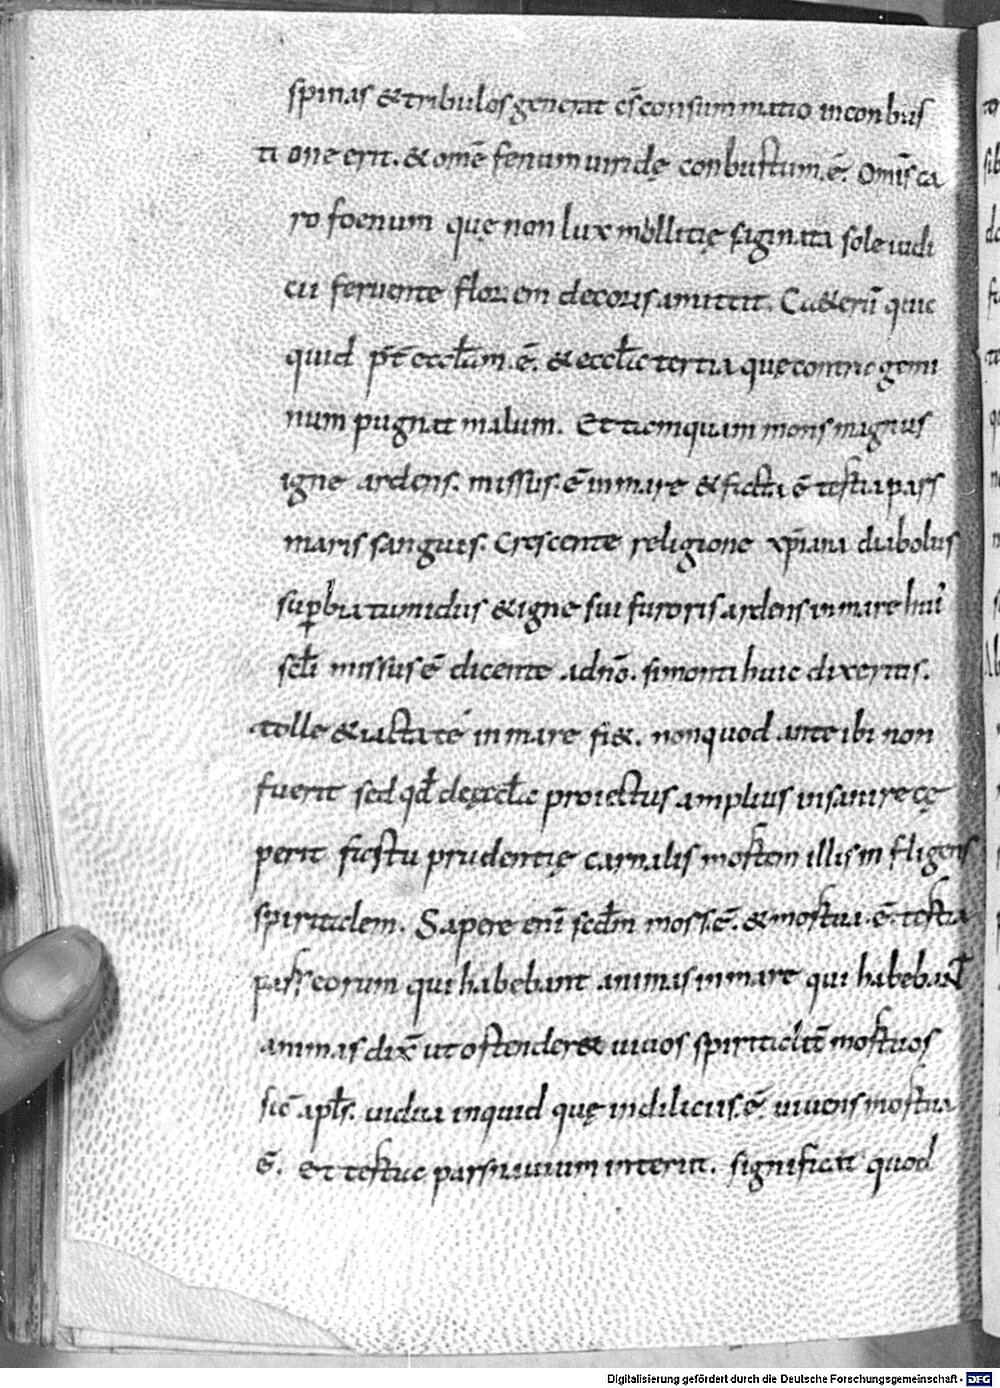 spinas & tribulos generat c̄s consummatio in conbus
ti one erit. & om̄e fenum uiridę conbustum .ē. Om̄is ca
ro foenum quę non lux mollitię saginata sole iudi
cii feruente florem decoris amittit. Ca&erū quic
quid p̄t eccl̄am .ē. & eccl̄ie tertia quę contra gemi
num pugnat malum. Et tamquam mons magnus
igne ardens. missus .ē in mare & facta ē tertia pars
maris sanguis. Crescente religione xp̄iana diabolus
sup̱bia tumidus & igne sui furoris ardens in mare hui'
scl̄i missus ē dicente .adn̄o. si monti huic dixeritis.
tolle & iacta té in mare fi&. non quod ante ibi non
fuerit sed qđ de ęccl̄ia proiectus amplius insanire cę
perit factu prudentię carnalis mortem illis infligens
spiritalem. Sapere enī scđm mors .ē. & mortua .ē. tertia
pars eorum qui habebant animas in mare qui habebant
animas dix̄ ut ostender& uiuos spiritalit̄ mortuos
sic̄ apl̄s. uidua inquid quę in diliciis .ē. uiuens mortua
ē. Et tertiae pars nauium interiit. significat quod
Digitalisierung gefördert durch die Deutsche Forschungsgemeinschaft - DFG